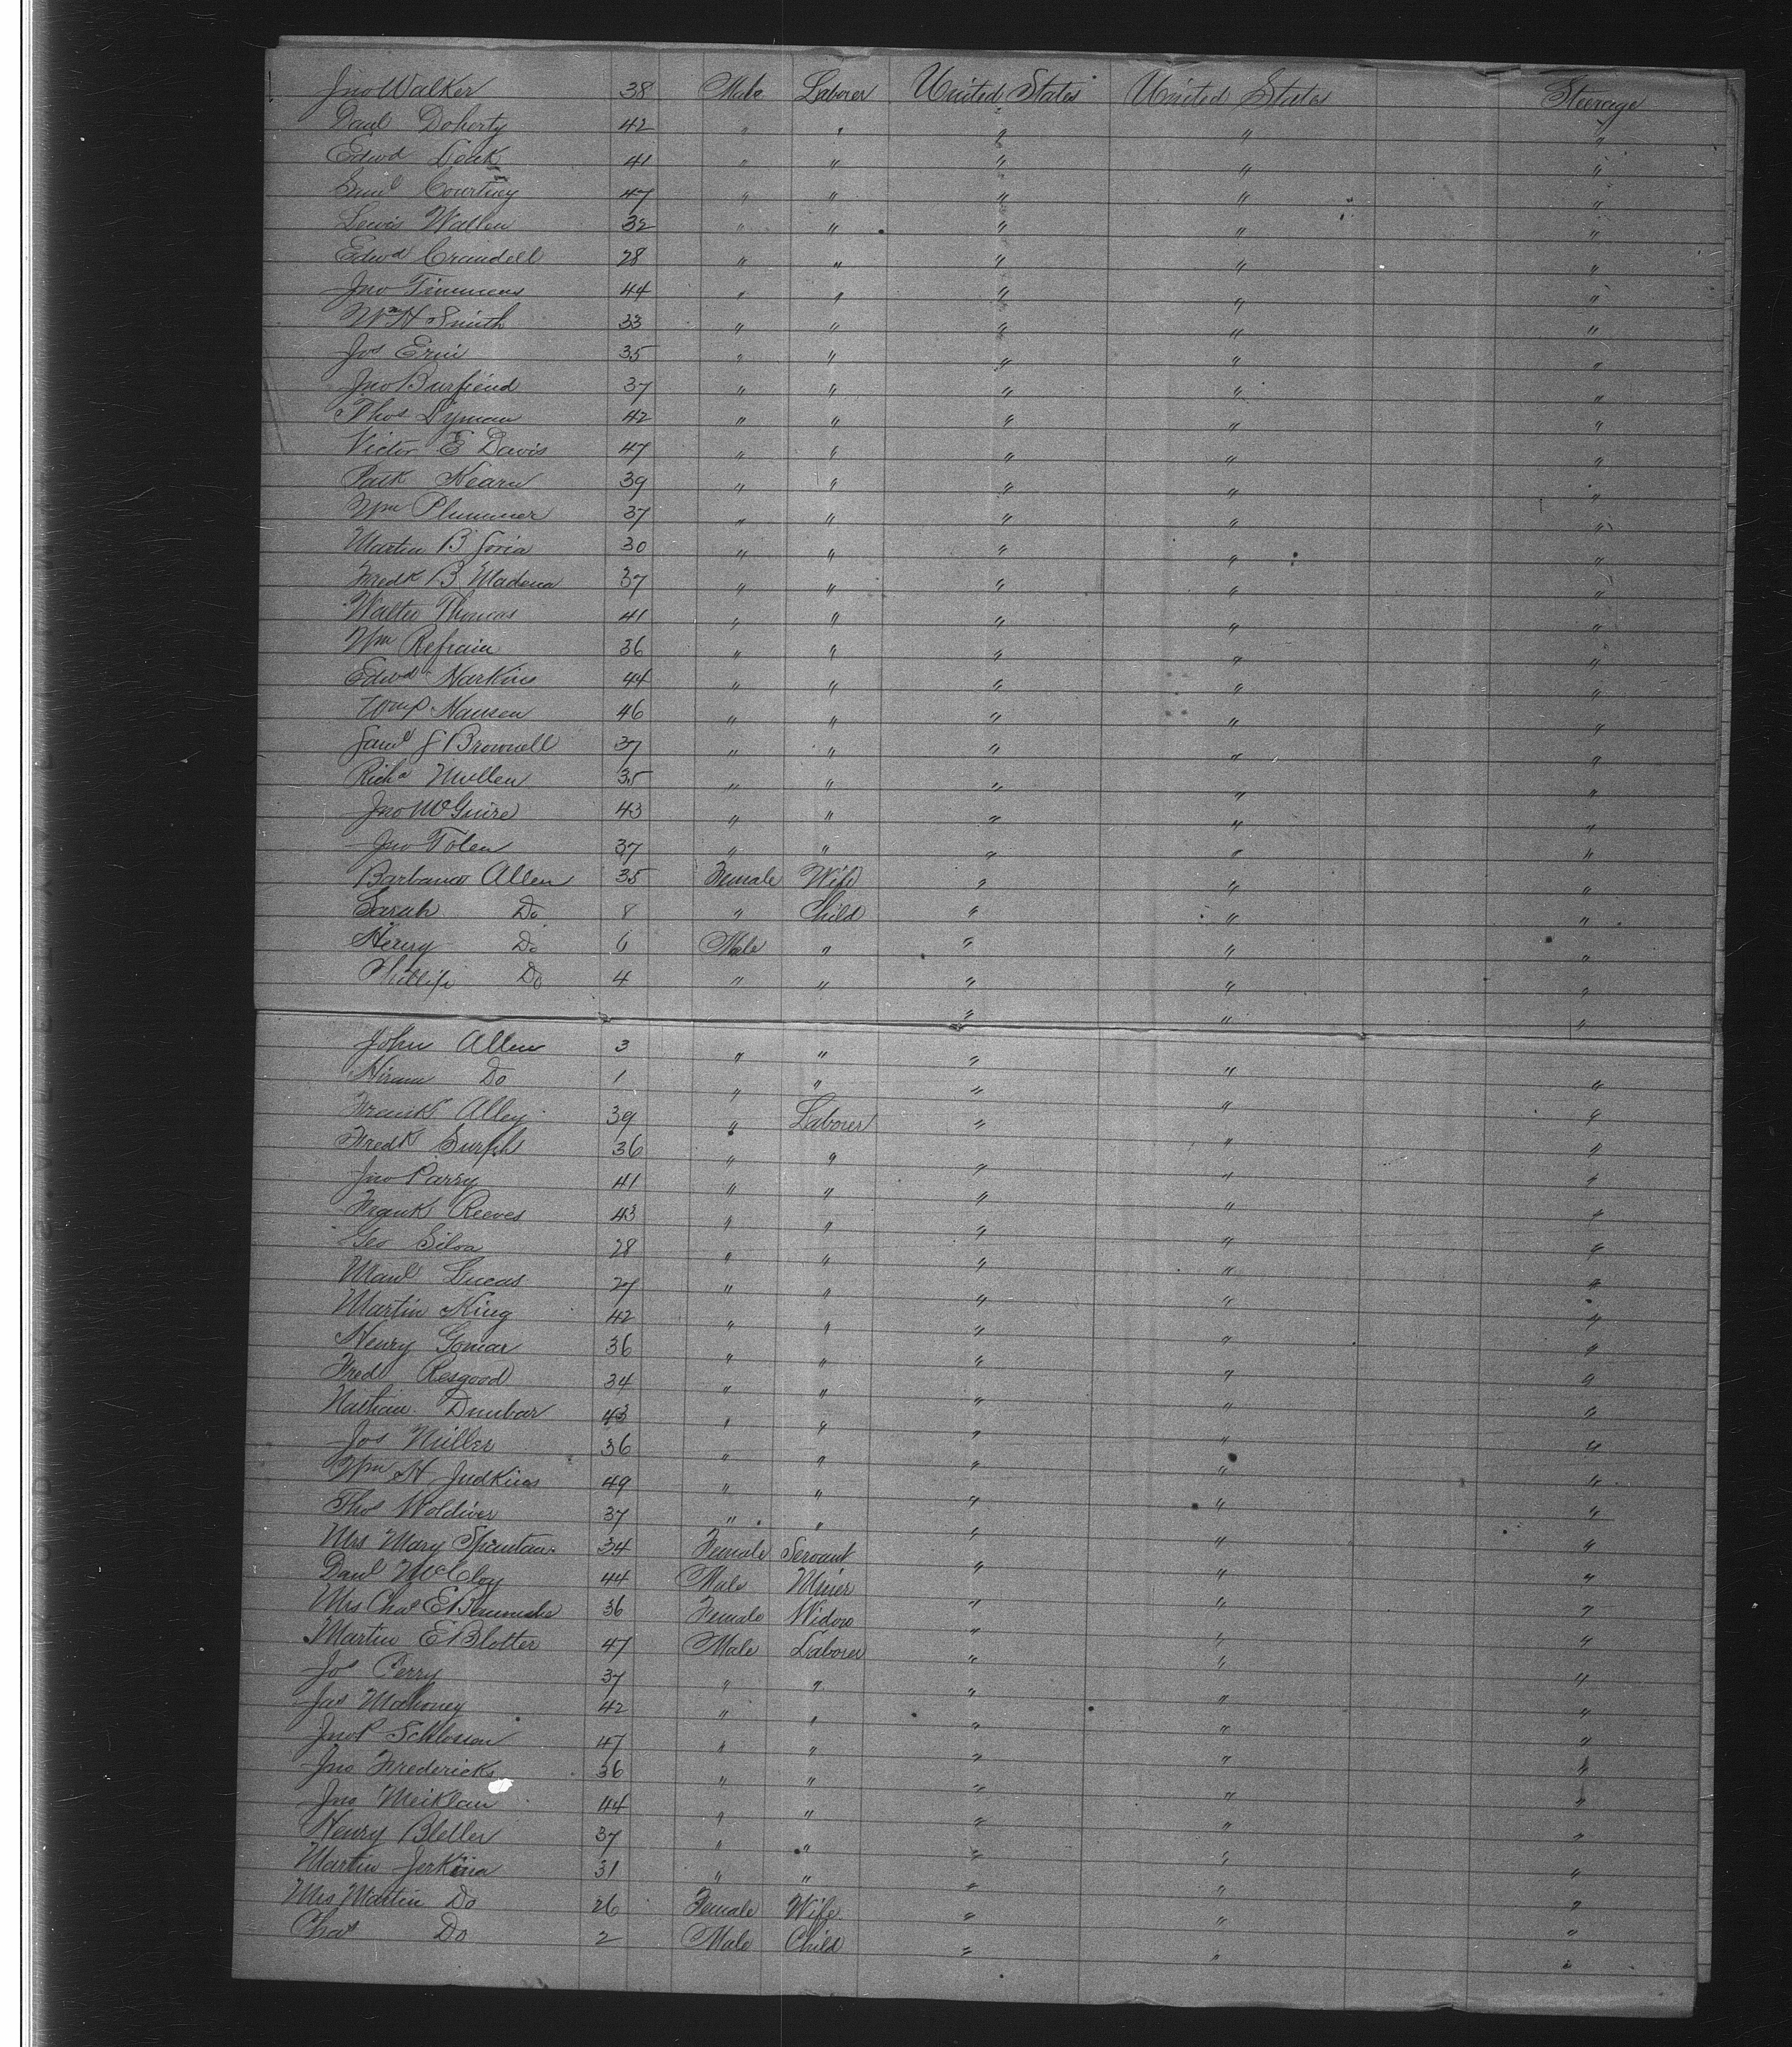 Jno Walker 38 Male Laborer United States United States Steerage
Danl Doherty 42 " " " " "
Edwd Doak 41 " " " " "
Saml Courtney 47 " " " " "
Lewis Wallen 32 " " " " "
Edwd Crandell 28 " " " " "
Jno Timmens 44 " " " " "
Wm H Smith 33 " " " " "
Jos Erni 35 " " " " "
Jno Burfiend 37 " " " " "
Thos Lyman 42 " " " " "
Victor E Davis 47 " " " " "
Patk Hearn 39 " " " " "
Wm Plummer 37 " " " " "
Martin B Soria 30 " " " " "
Fredk B Madena 37 " " " " "
Walter Thomas 41 " " " " "
Wm Refrain 36 " " " " "
Edwd Harkins 44 " " " " "
Wm P Hansen 46 " " " " "
Saml J Brownell 37 " " " " "
Richd Mullen 35 " " " " "
Jno McGuire 43 " " " " "
Jno Tolen 37 " " " " "
Allen 35 Female Wife " " "
Sarah Do 8 " Child " " "
Henry Do 6 Male " " " "
Phillip Do 4 " " " " "
" " "
John Allen 3 " " " " "
Hiram Do 1 " " " " "
Frank Alley 39 " Laborer " " "
Fredk Surphs 36 " " " " "
Jno Parry 41 " " " " "
Frank Reeves 43 " " " " "
Geo Silva 28 " " " " "
Manl Lucas 27 " " " " "
Martin King 42 " " " " "
Henry Gomar 36 " " " " "
Fred Resgood 34 " " " " "
Nathan Dunbar 43 " " " " "
Jos Miller 36 " " " " "
Wm H Judkins 49 " " " " "
Thos Woldiver 37 " " " " "
Mrs Mary 34 Female Servant " " "
Danl McCloy 44 Male Miner " " "
Mrs Chas E 36 Female Widow " " "
Martin E Blotter 47 Male Laborer " " "
Jos Perry 37 " " " " "
Jas Mahoney 42 " " " " "
Jno P 47 " " " " "
Jno Fredericks 36 " " " " "
Jno Meiklan 44 " " " " "
Henry Bletler 37 " " " " "
Martin Jerkina 31 " " " " "
Mrs Martin Do 26 Female Wife " " "
Chas Do 2 Male Child " " "